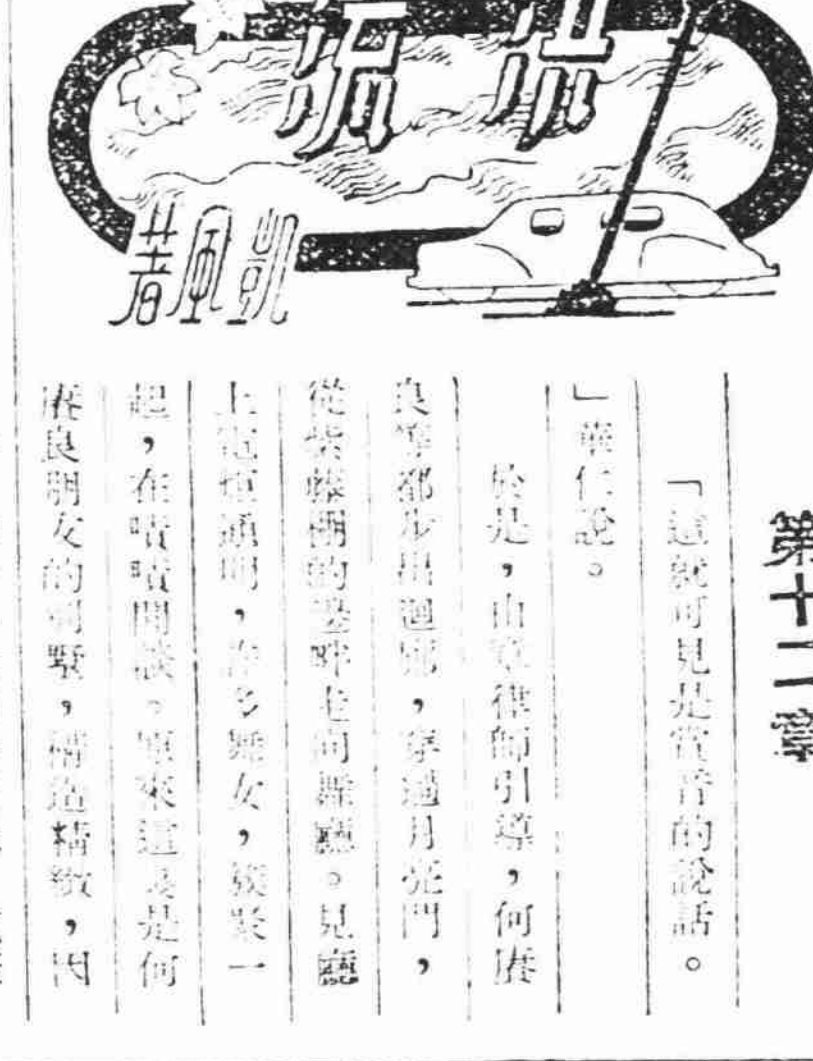 流
凱風著
第十二章
「這就可見是的說話。
」華仁說。
於是,由章律師引導,何賡
良等都步出迴廊,穿過月亮門,
從紫藤棚的邊畔走向舞廳。見廳
上電燈通明,許多舞女,聚一
起,在嘖嘖閒談。原來這又是何
賡良朋友的別墅,構造精緻,因